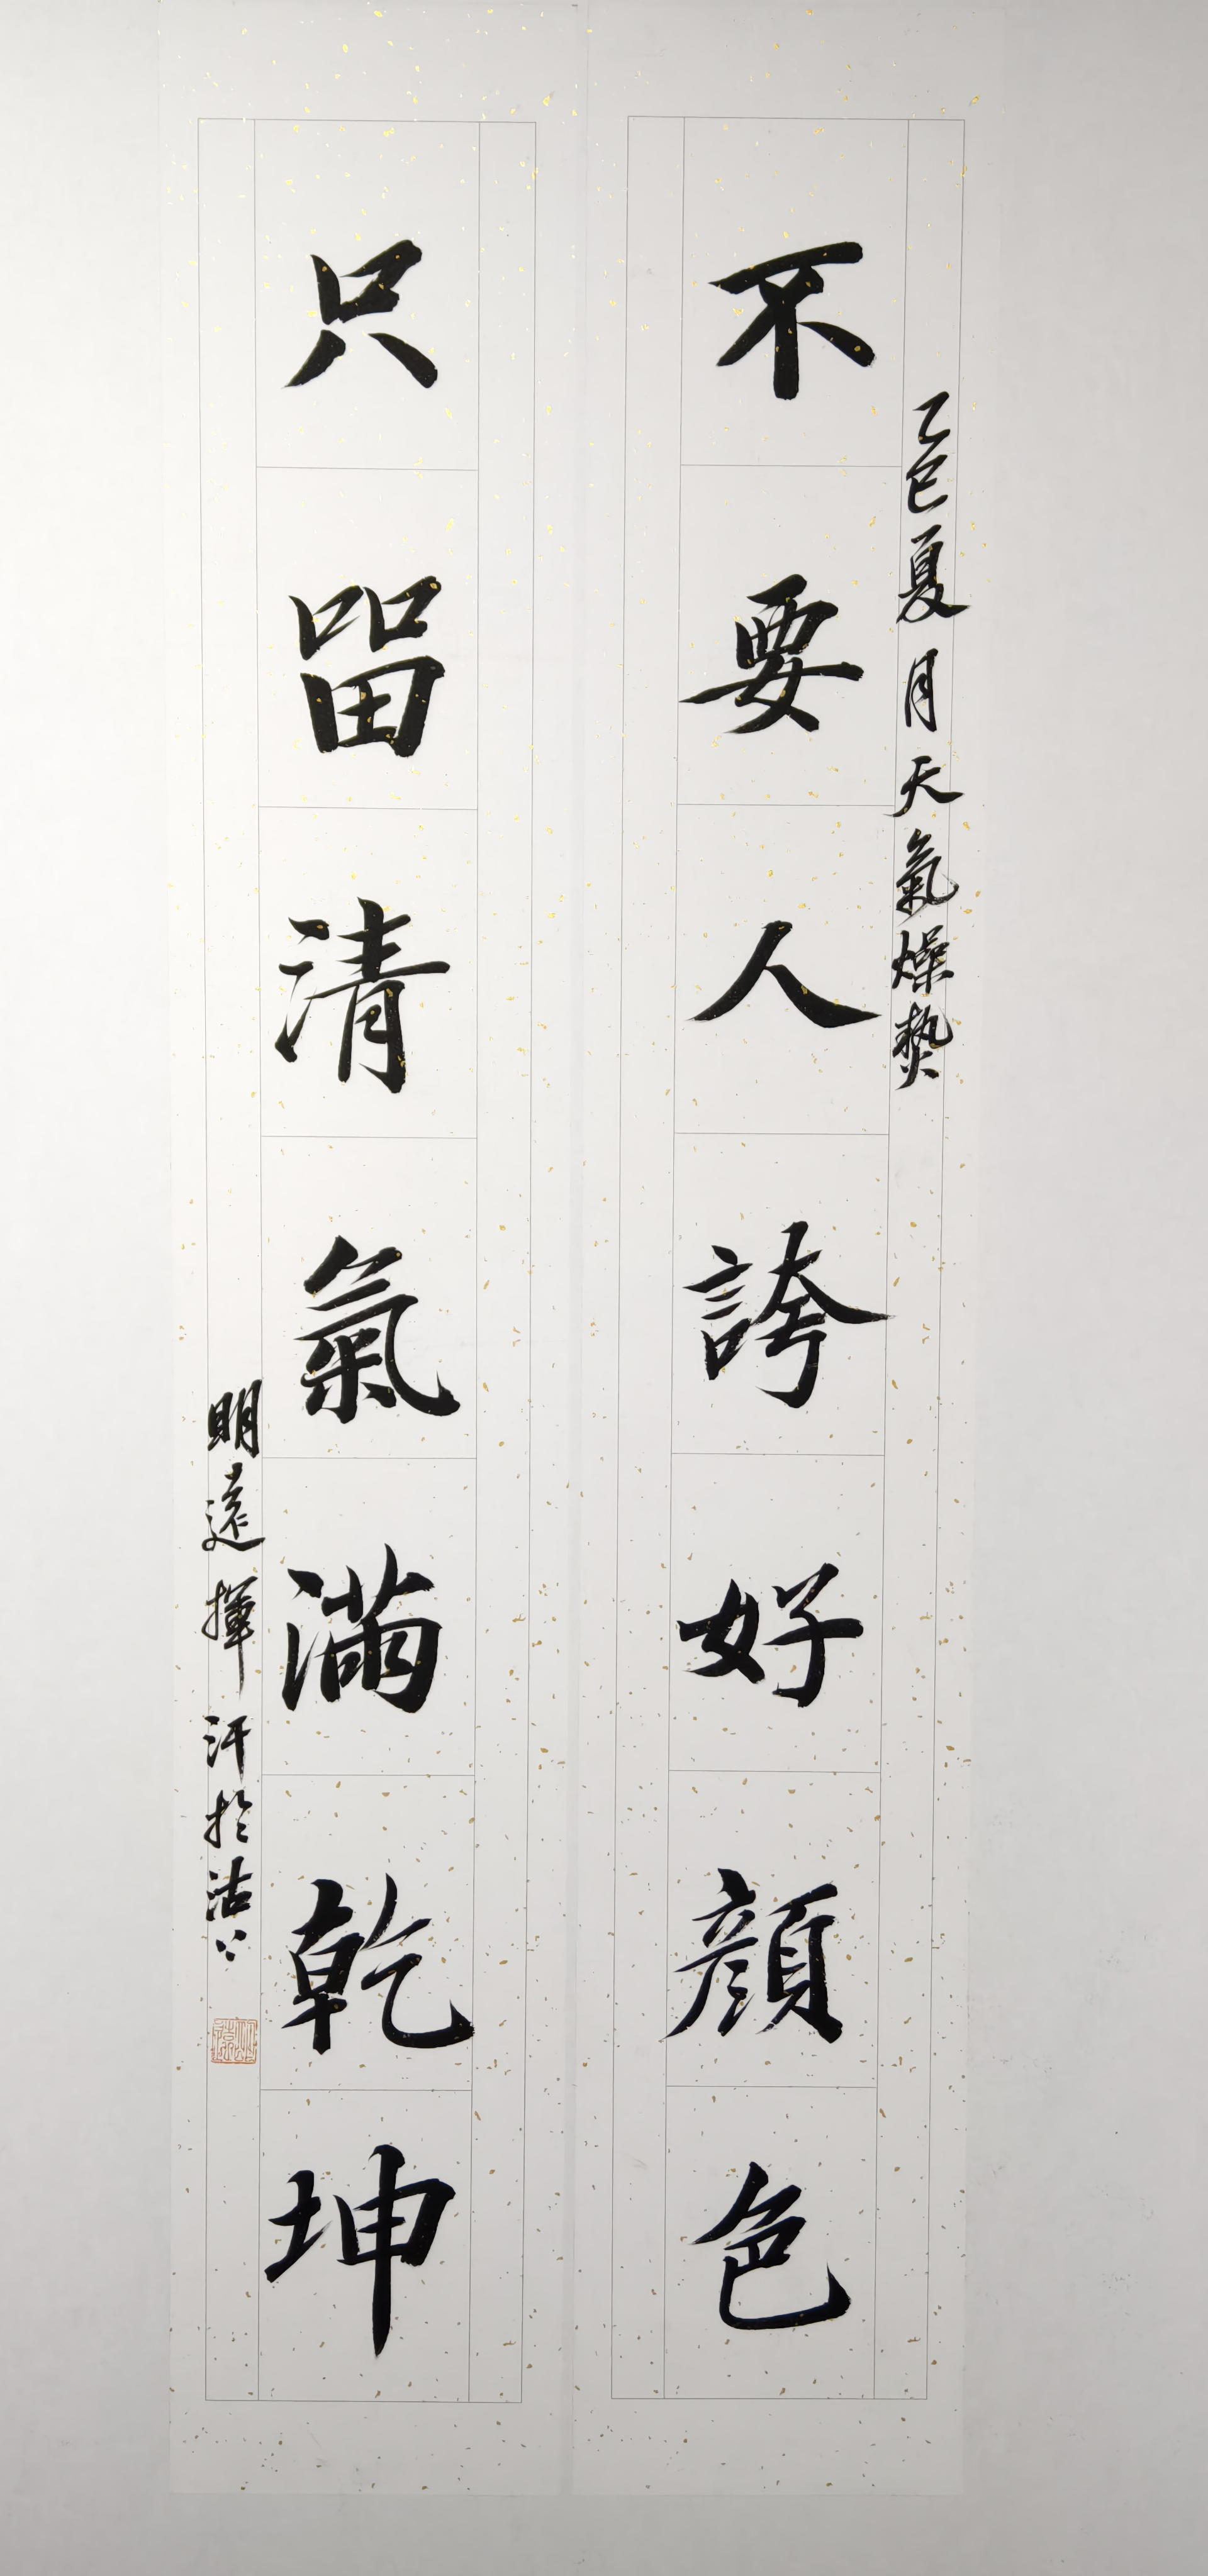 乙巳夏月天氣燥熱
不要人誇好顔色
只留清氣滿乾坤
明遠揮汗於沽上